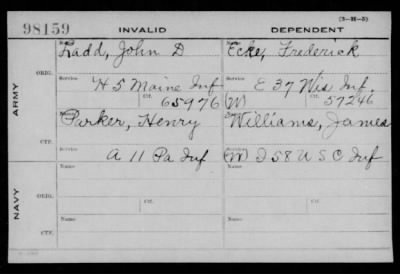 (3-H-5)
98159 INVALID DEPENDENT
Name Name
Ladd, John D Ecke, Frederick
ORIG.
Service Service
H 5 Maine Inf E 37 Wis Inf.
Ctf. 65976 (W) Ctf. 57246
ARMY
Name Name
Parker, Henry Williams, James
CTF.
A 11 Pa Inf (W) D 58 U S C Inf
Name Name
ORIG.
Service Service
Ctf. Ctf.
NAVY
Name Name
CTF.